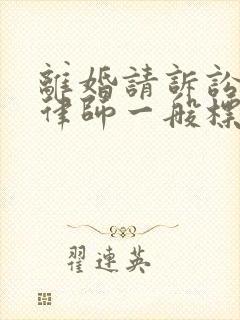 離婚請訴訟
律師一般標
翟連英